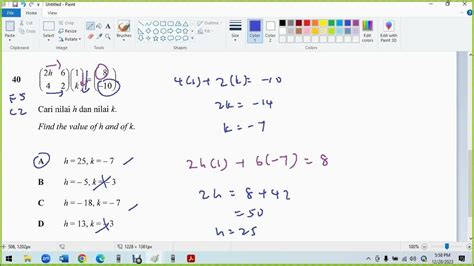 Untitled - Paint
File Home View
Paste
Clipboard
Select
Image
Brushes
Tools
Shapes
Size
Color 1
Color 2
Colors
Edit colors
Edit with Paint 3D
40
(2h 6
4 2) (1
k) = (8
-10)
F5
C2
Cari nilai h dan nilai k.
Find the value of h and of k.
A h = 25, k = - 7
B h = - 5, k = - 3
C h = - 18, k = - 7
D h = 13, k = - 3
4(1) + 2(k) = -10
2k = -14
k = -7
2h(1) + 6(-7) = 8
2h = 8 + 42
= 50
h = 25
506, 1200px
1228 × 1381px
5:58 PM
12/28/2023